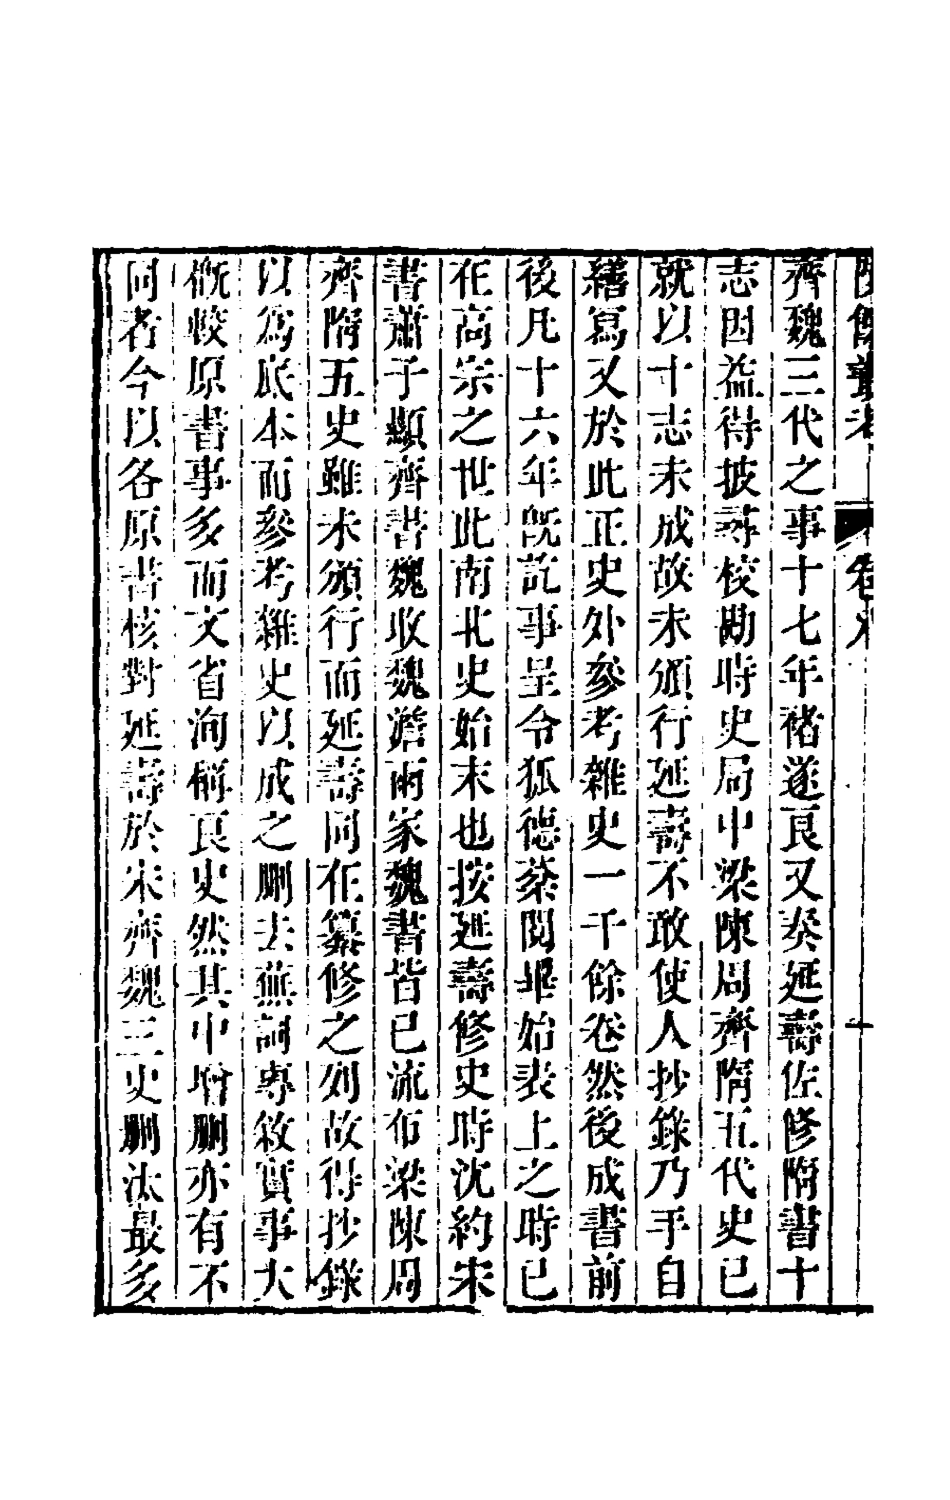 陔餘叢考 卷八 十
齊魏三代之事十七年褚遂良又奏延壽佐修隋書十
志因益得披尋校勘時史局中梁陳周齊隋五代史已
就以十志未成故未頒行延壽不敢使人抄錄乃手自
繕寫又於此正史外參考雜史一千餘卷然後成書前
後凡十六年旣訖事呈令狐德棻閱畢始表上之時已
在高宗之世此南北史始末也按延壽修史時沈約宋
書蕭子顯齊書魏收魏澹兩家魏書皆已流布梁陳周
齊隋五史雖未頒行而延壽同在纂修之列故得抄錄
以爲底本而參考雜史以成之刪去蕪詞專敘實事大
槪較原書事多而文省洵稱良史然其中增刪亦有不
同者今以各原書核對延壽於宋齊魏三史刪汰最多